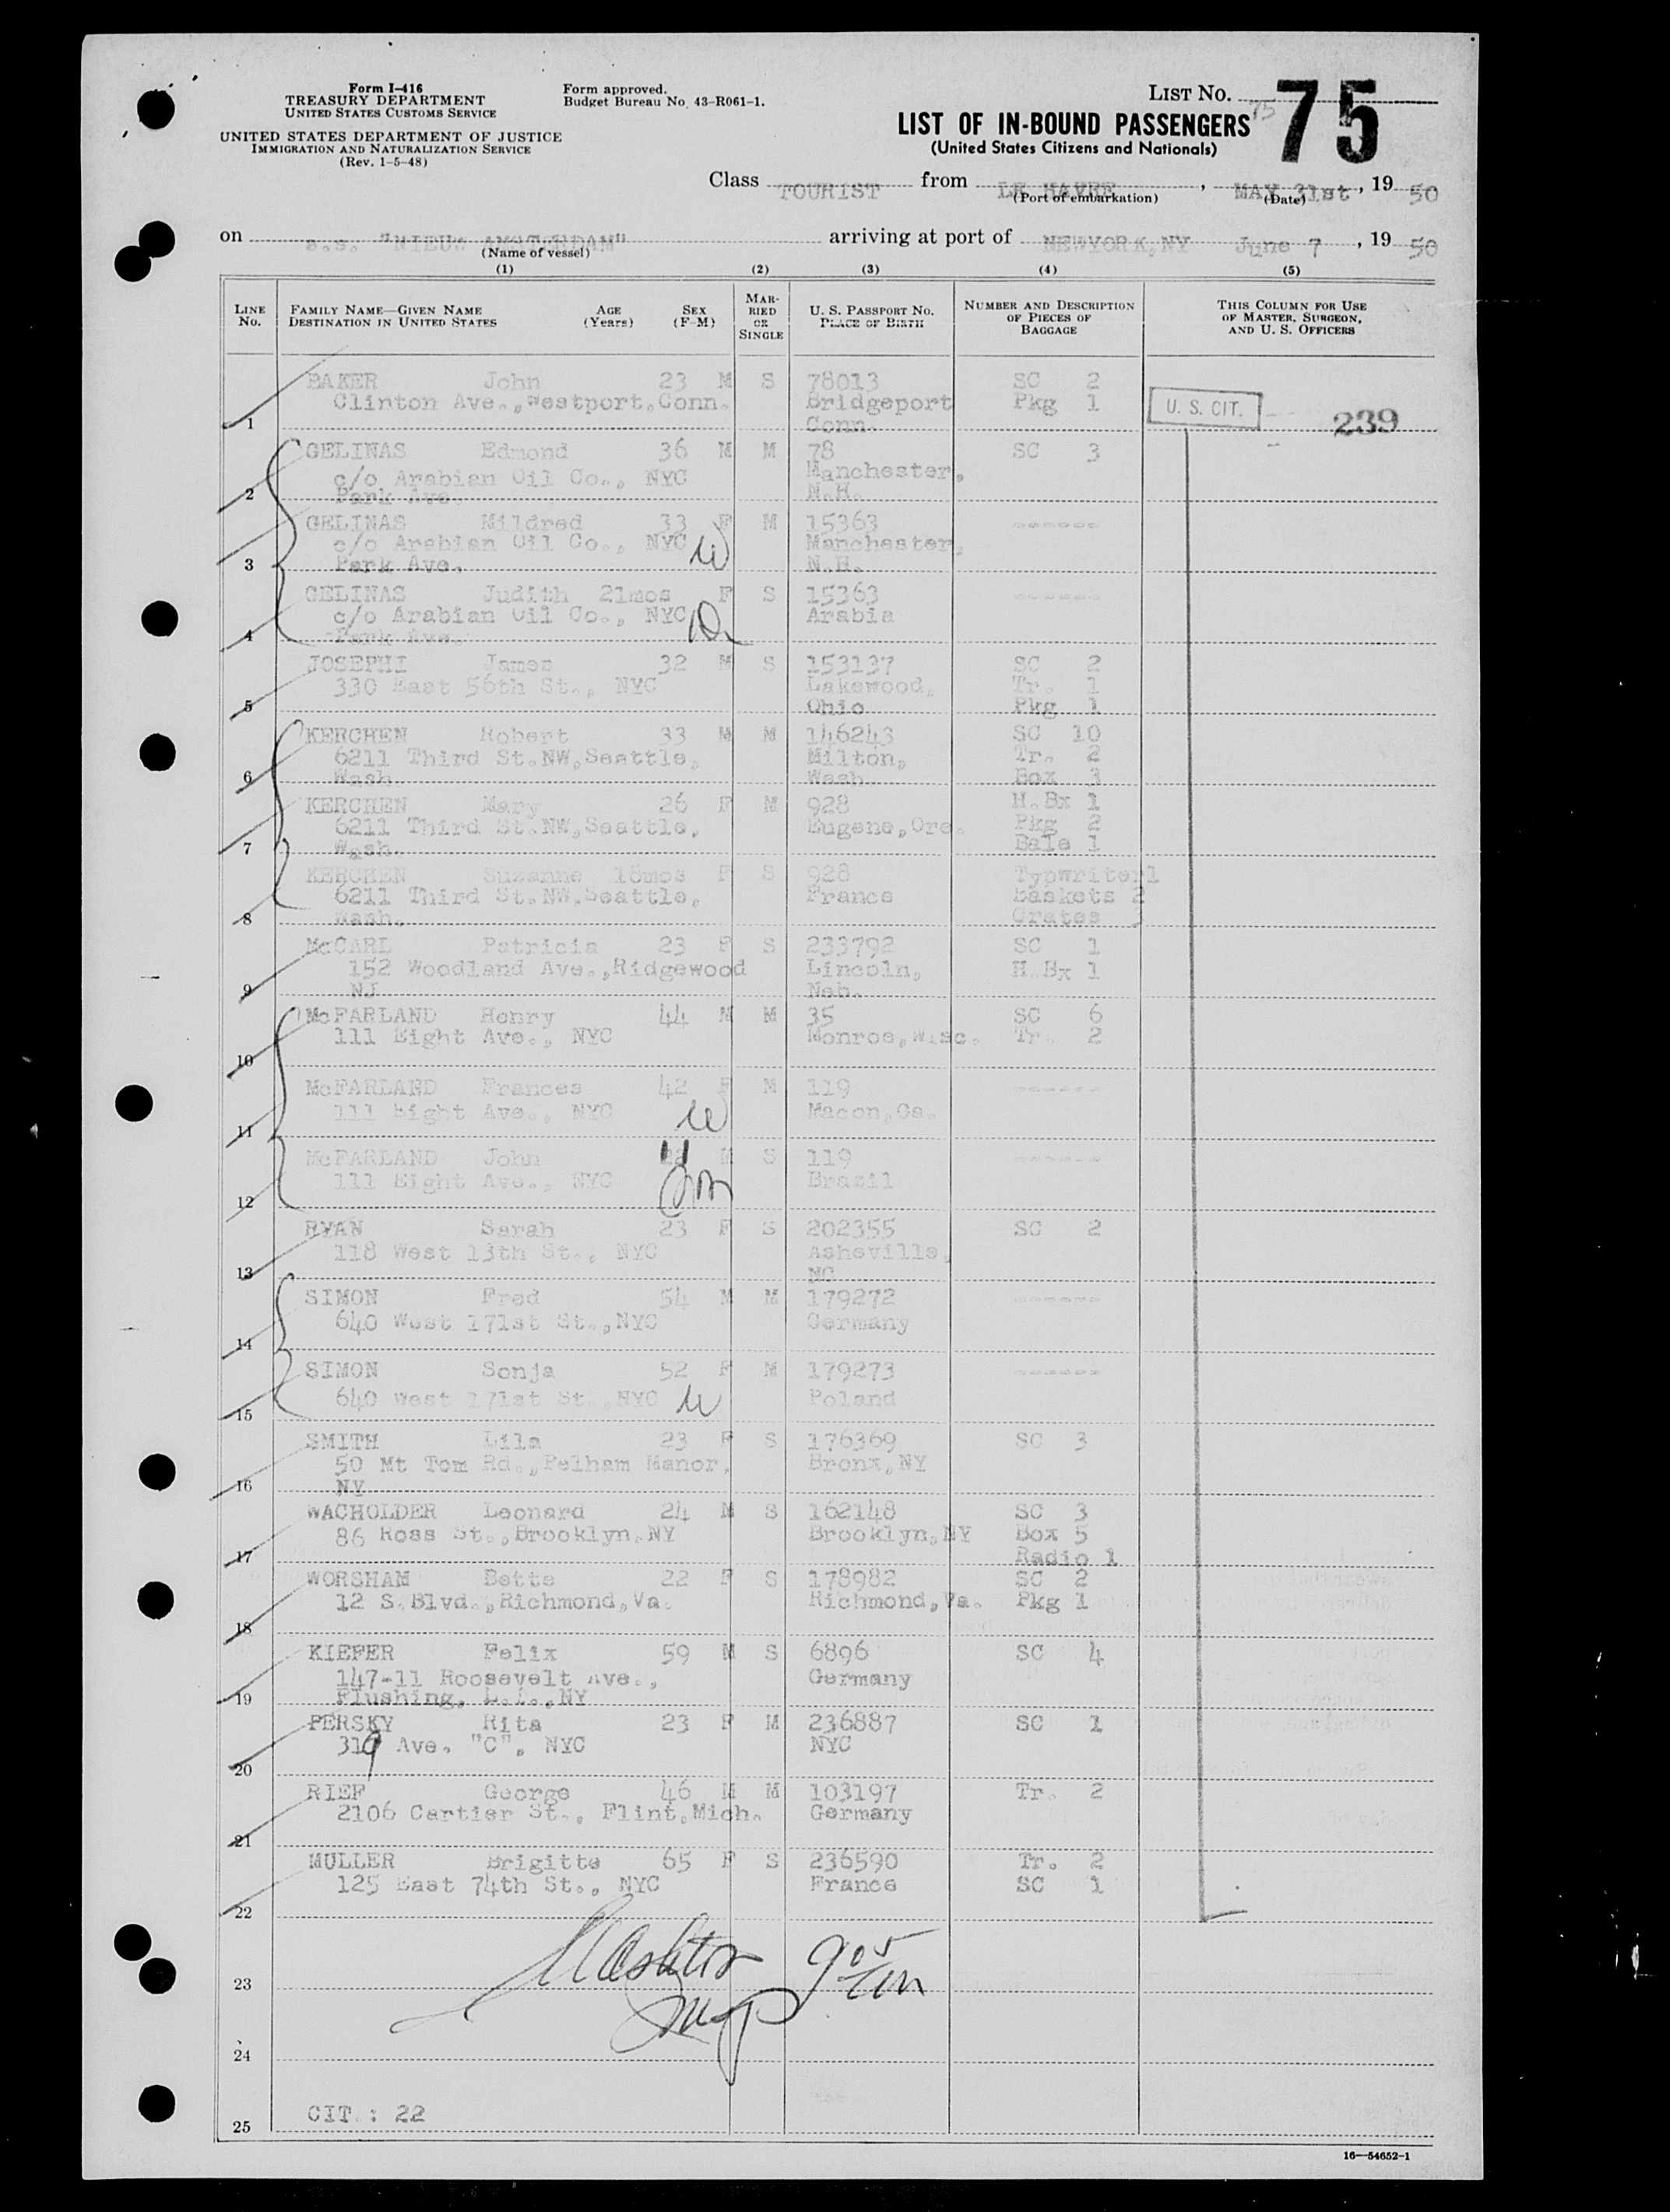 Form I-416
TREASURY DEPARTMENT
UNITED STATES CUSTOMS SERVICE
UNITED STATES DEPARTMENT OF JUSTICE
IMMIGRATION AND NATURALIZATION SERVICE
(Rev. 1-5-48)
Form approved.
Budget Bureau No. 43-R061-1.
LIST NO. 75
75
LIST OF IN-BOUND PASSENGERS
(United States Citizens and Nationals)
Class TOURIST from LE HAVRE, MAY 31st, 19 50
(Port of embarkation) (Date)
on s.s. "NIEUW AMSTERDAM" arriving at port of NEWYORK,NY June 7, 19 50
(Name of vessel)
(1) (2) (3) (4) (5)
LINE No. FAMILY NAME—GIVEN NAME DESTINATION IN UNITED STATES AGE (Years) SEX (F-M) MARRIED OR SINGLE U. S. PASSPORT NO. PLACE OF BIRTH NUMBER AND DESCRIPTION OF PIECES OF BAGGAGE THIS COLUMN FOR USE OF MASTER, SURGEON, AND U. S. OFFICERS
BAKER John 23 M S 78013 SC 2
Clinton Ave.,Westport,Conn. Bridgeport Pkg 1 U. S. CIT. 239
1 Conn.
GELINAS Edmond 36 M M 78 SC 3
c/o Arabian Oil Co., NYC Manchester,
2 Park Ave. N.H.
GELINAS Mildred 33 F M 15363 ------
c/o Arabian Oil Co., NYC W Manchester,
3 Park Ave. N.H.
GELINAS Judith 21mos F S 15363 ------
c/o Arabian Oil Co., NYC D Arabia
4 Park Ave.
JOSEPHI James 32 M S 153137 SC 2
330 East 56th St., NYC Lakewood, Tr. 1
5 Ohio Pkg 1
KERCHEN Robert 33 M M 146243 SC 10
6211 Third St.NW,Seattle, Milton, Tr. 2
6 Wash. Wash. Box 3
KERCHEN Mary 26 F M 928 H.Bx 1
6211 Third St.NW,Seattle, Eugene,Ore. Pkg 2
7 Wash. Bale 1
KERCHEN Suzanne 18mos F S 928 Typwriter1
6211 Third St.NW,Seattle, France Baskets 2
8 Wash. Crates 3
McCARL Patricia 23 F S 233792 SC 1
152 Woodland Ave.,Ridgewood Lincoln, H.Bx 1
9 NJ Neb.
McFARLAND Henry 44 M M 35 SC 6
111 Eight Ave., NYC Monroe,Wisc. Tr. 2
10
McFARLAND Frances 42 F M 119 ------
111 Eight Ave., NYC W Macon,Ga.
11
McFARLAND John 11 M S 119 ------
111 Eight Ave., NYC Brazil
12
RYAN Sarah 23 F S 202355 SC 2
118 West 13th St., NYC Asheville,
13 NC
SIMON Fred 54 M M 179272 ------
640 West 171st St.,NYC Germany
14
SIMON Sonja 52 F M 179273 ------
640 West 171st St.,NYC W Poland
15
SMITH Lila 23 F S 176369 SC 3
50 Mt Tom Rd.,Pelham Manor, Bronx,NY
16 NY
WACHOLDER Leonard 24 M S 162148 SC 3
86 Ross St.,Brooklyn,NY Brooklyn,NY Box 5
17 Radio 1
WORSHAM Bette 22 F S 178982 SC 2
12 S.Blvd.,Richmond,Va. Richmond,Va. Pkg 1
18
KIEFER Felix 59 M S 6896 SC 4
147-11 Roosevelt Ave., Germany
19 Flushing, L.I.,NY
PERSKY Rita 23 F M 236887 SC 1
319 Ave. "C", NYC NYC
20
RIEF George 46 M M 103197 Tr. 2
2106 Cartier St., Flint,Mich. Germany
21
MULLER Brigitte 65 F S 236590 Tr. 2
125 East 74th St., NYC France SC 1
22
23
24
25 CIT.: 22
16—54652-1